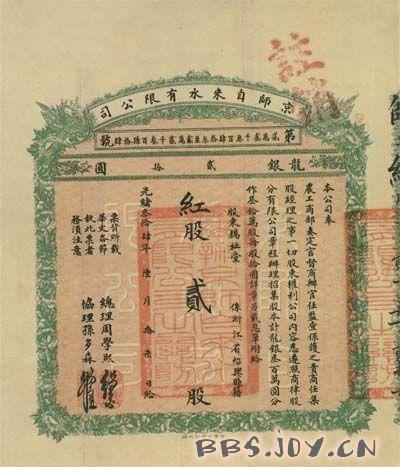 註銷
京師自來水有限公司
第貳萬貳千叁百肆拾叁至貳萬貳千叁百肆拾肆號
龍銀貳拾圓
本公司奉
農工商部奏定官督商辦官任監查保護之責商任集
股經理之事一切股東權利公司內容悉遵照商律股
分有限公司章程辦理招集股本計龍銀叁百萬圓分
作叁拾萬股每股拾圓詳章另載息單附給
股東 係浙江省紹興縣籍
紅股貳股
光緒叁拾肆年陸月拾柒日給
票背所載
華文各節
執此票者
務須注意
總理周學熙
協理孫多森
BBS.JOY.CN